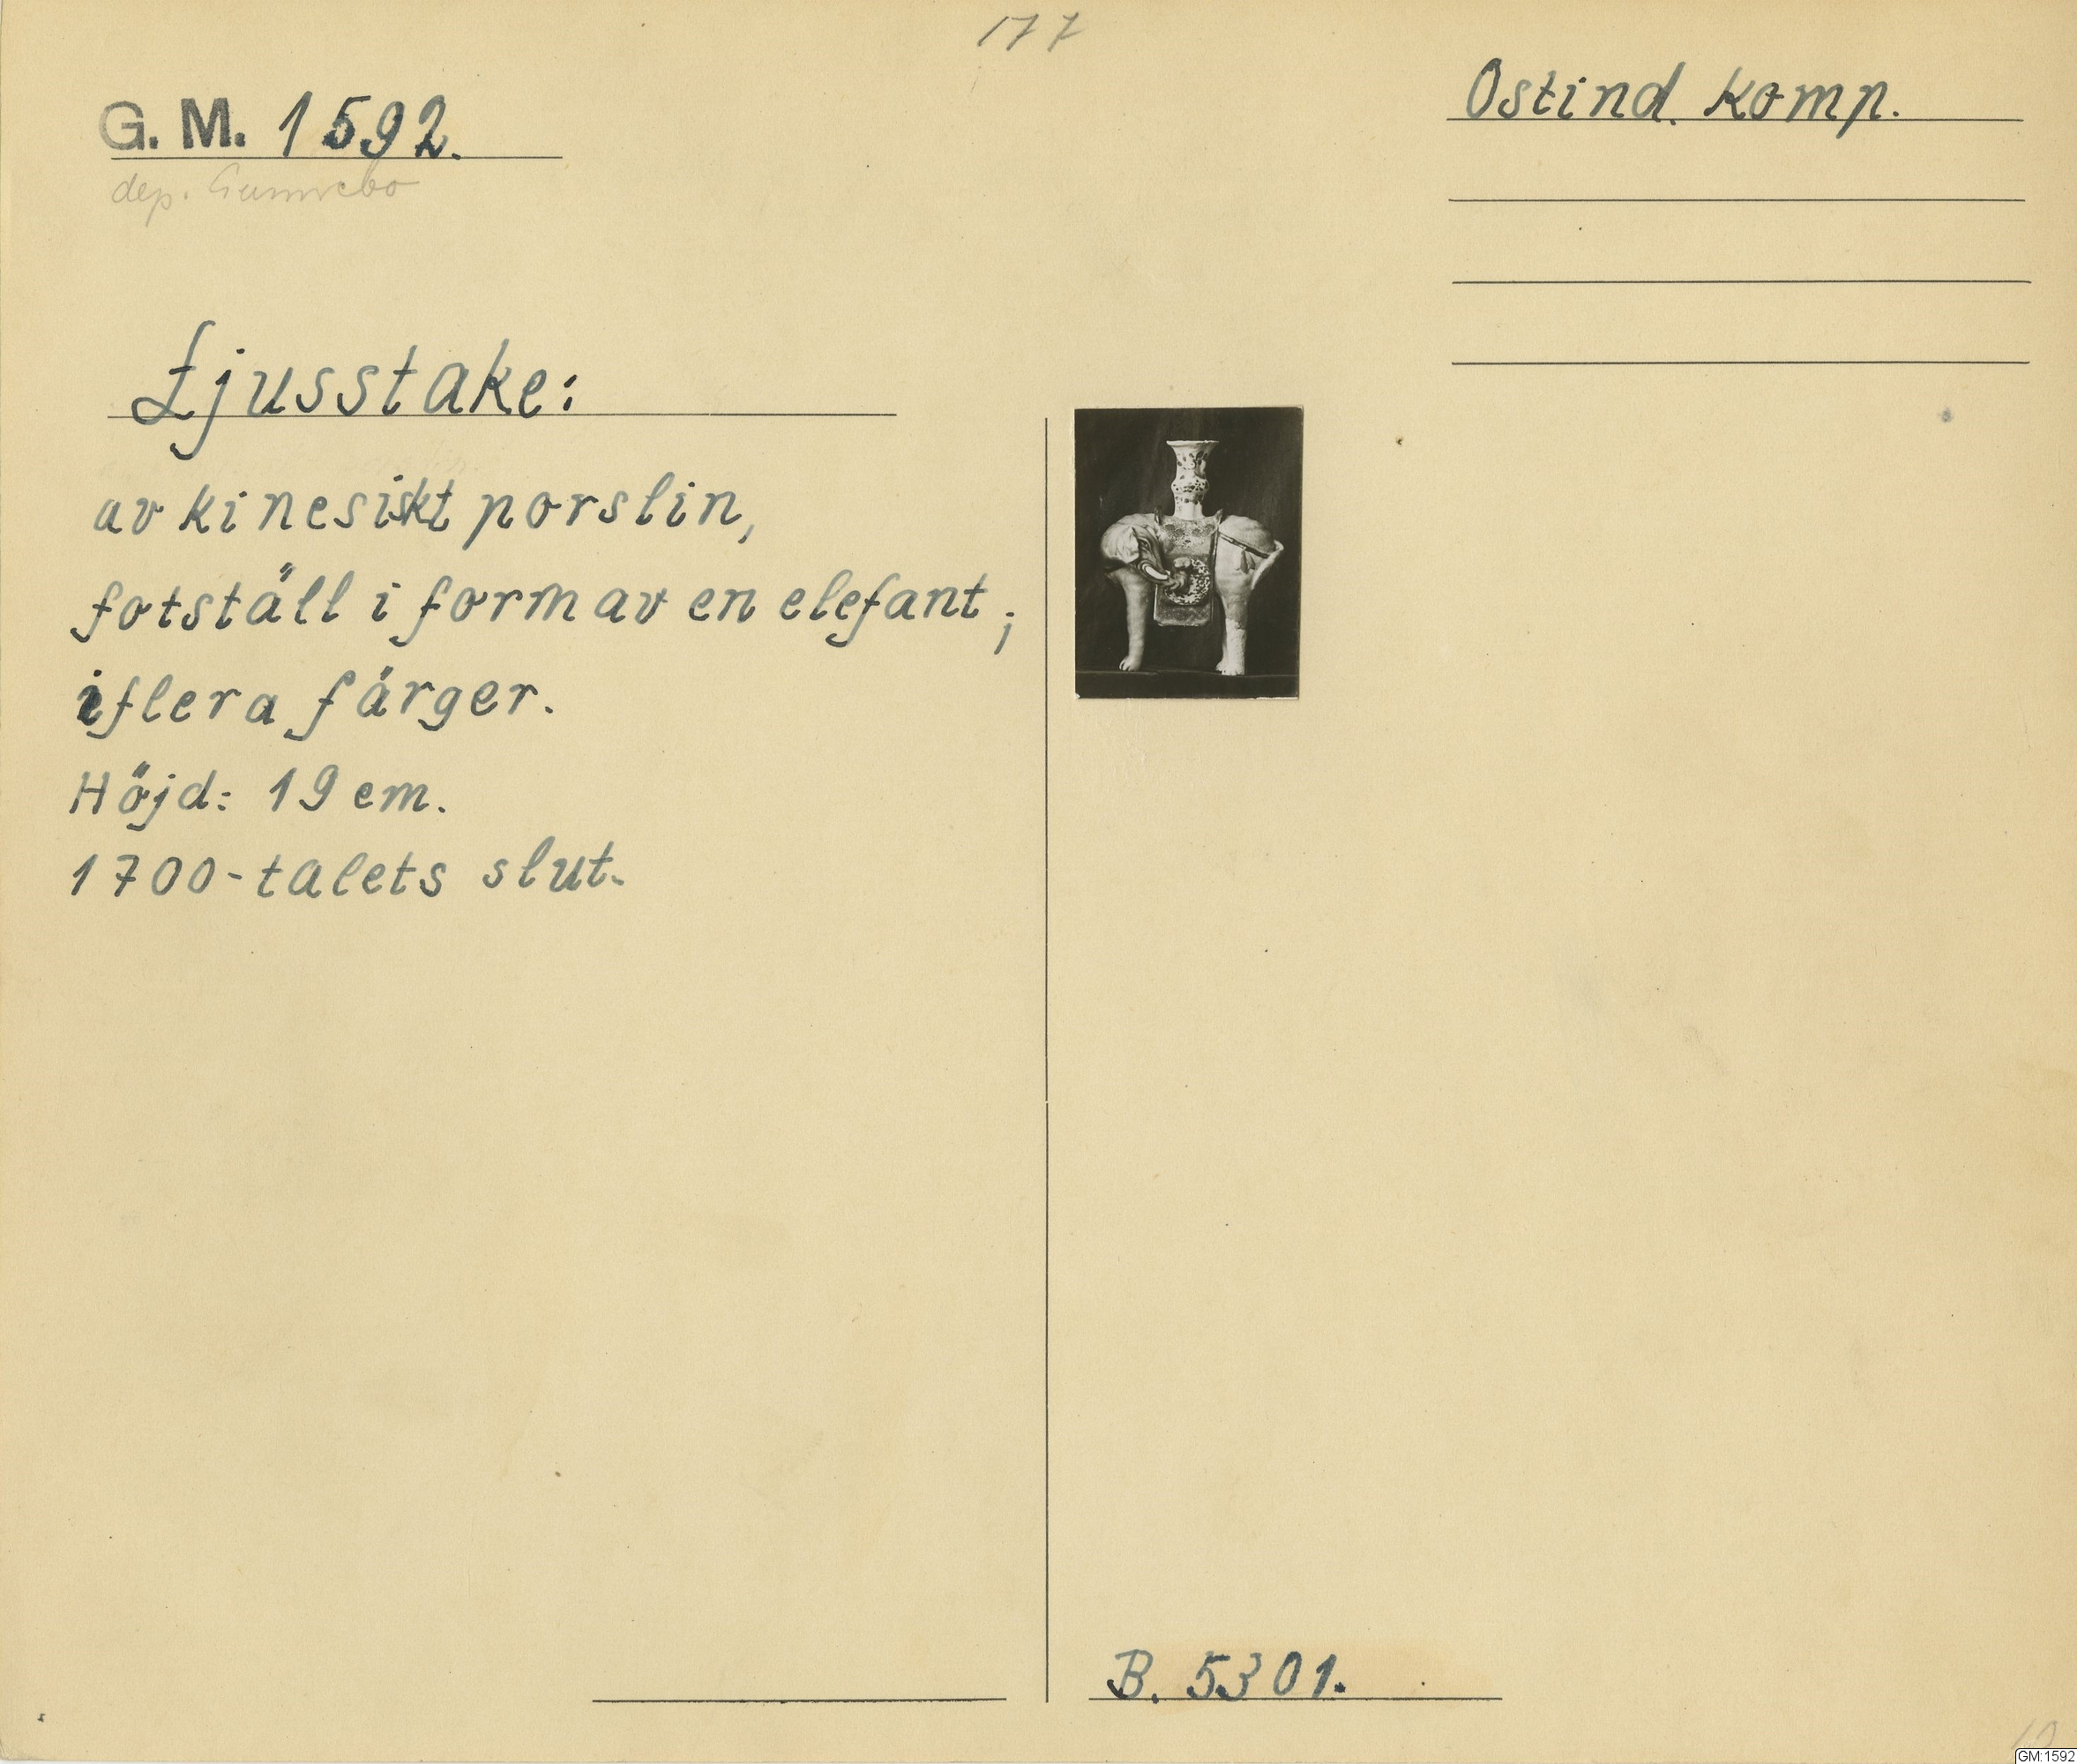 177
Ostind. Komp.
G. M. 1592.
dep. Gunnebo
Ljusstake:
av kinesiskt porslin,
fotställ i form av en elefant;
i flera färger.
Höjd: 19 cm.
1700-talets slut.
B. 5301.
10
GM:1592